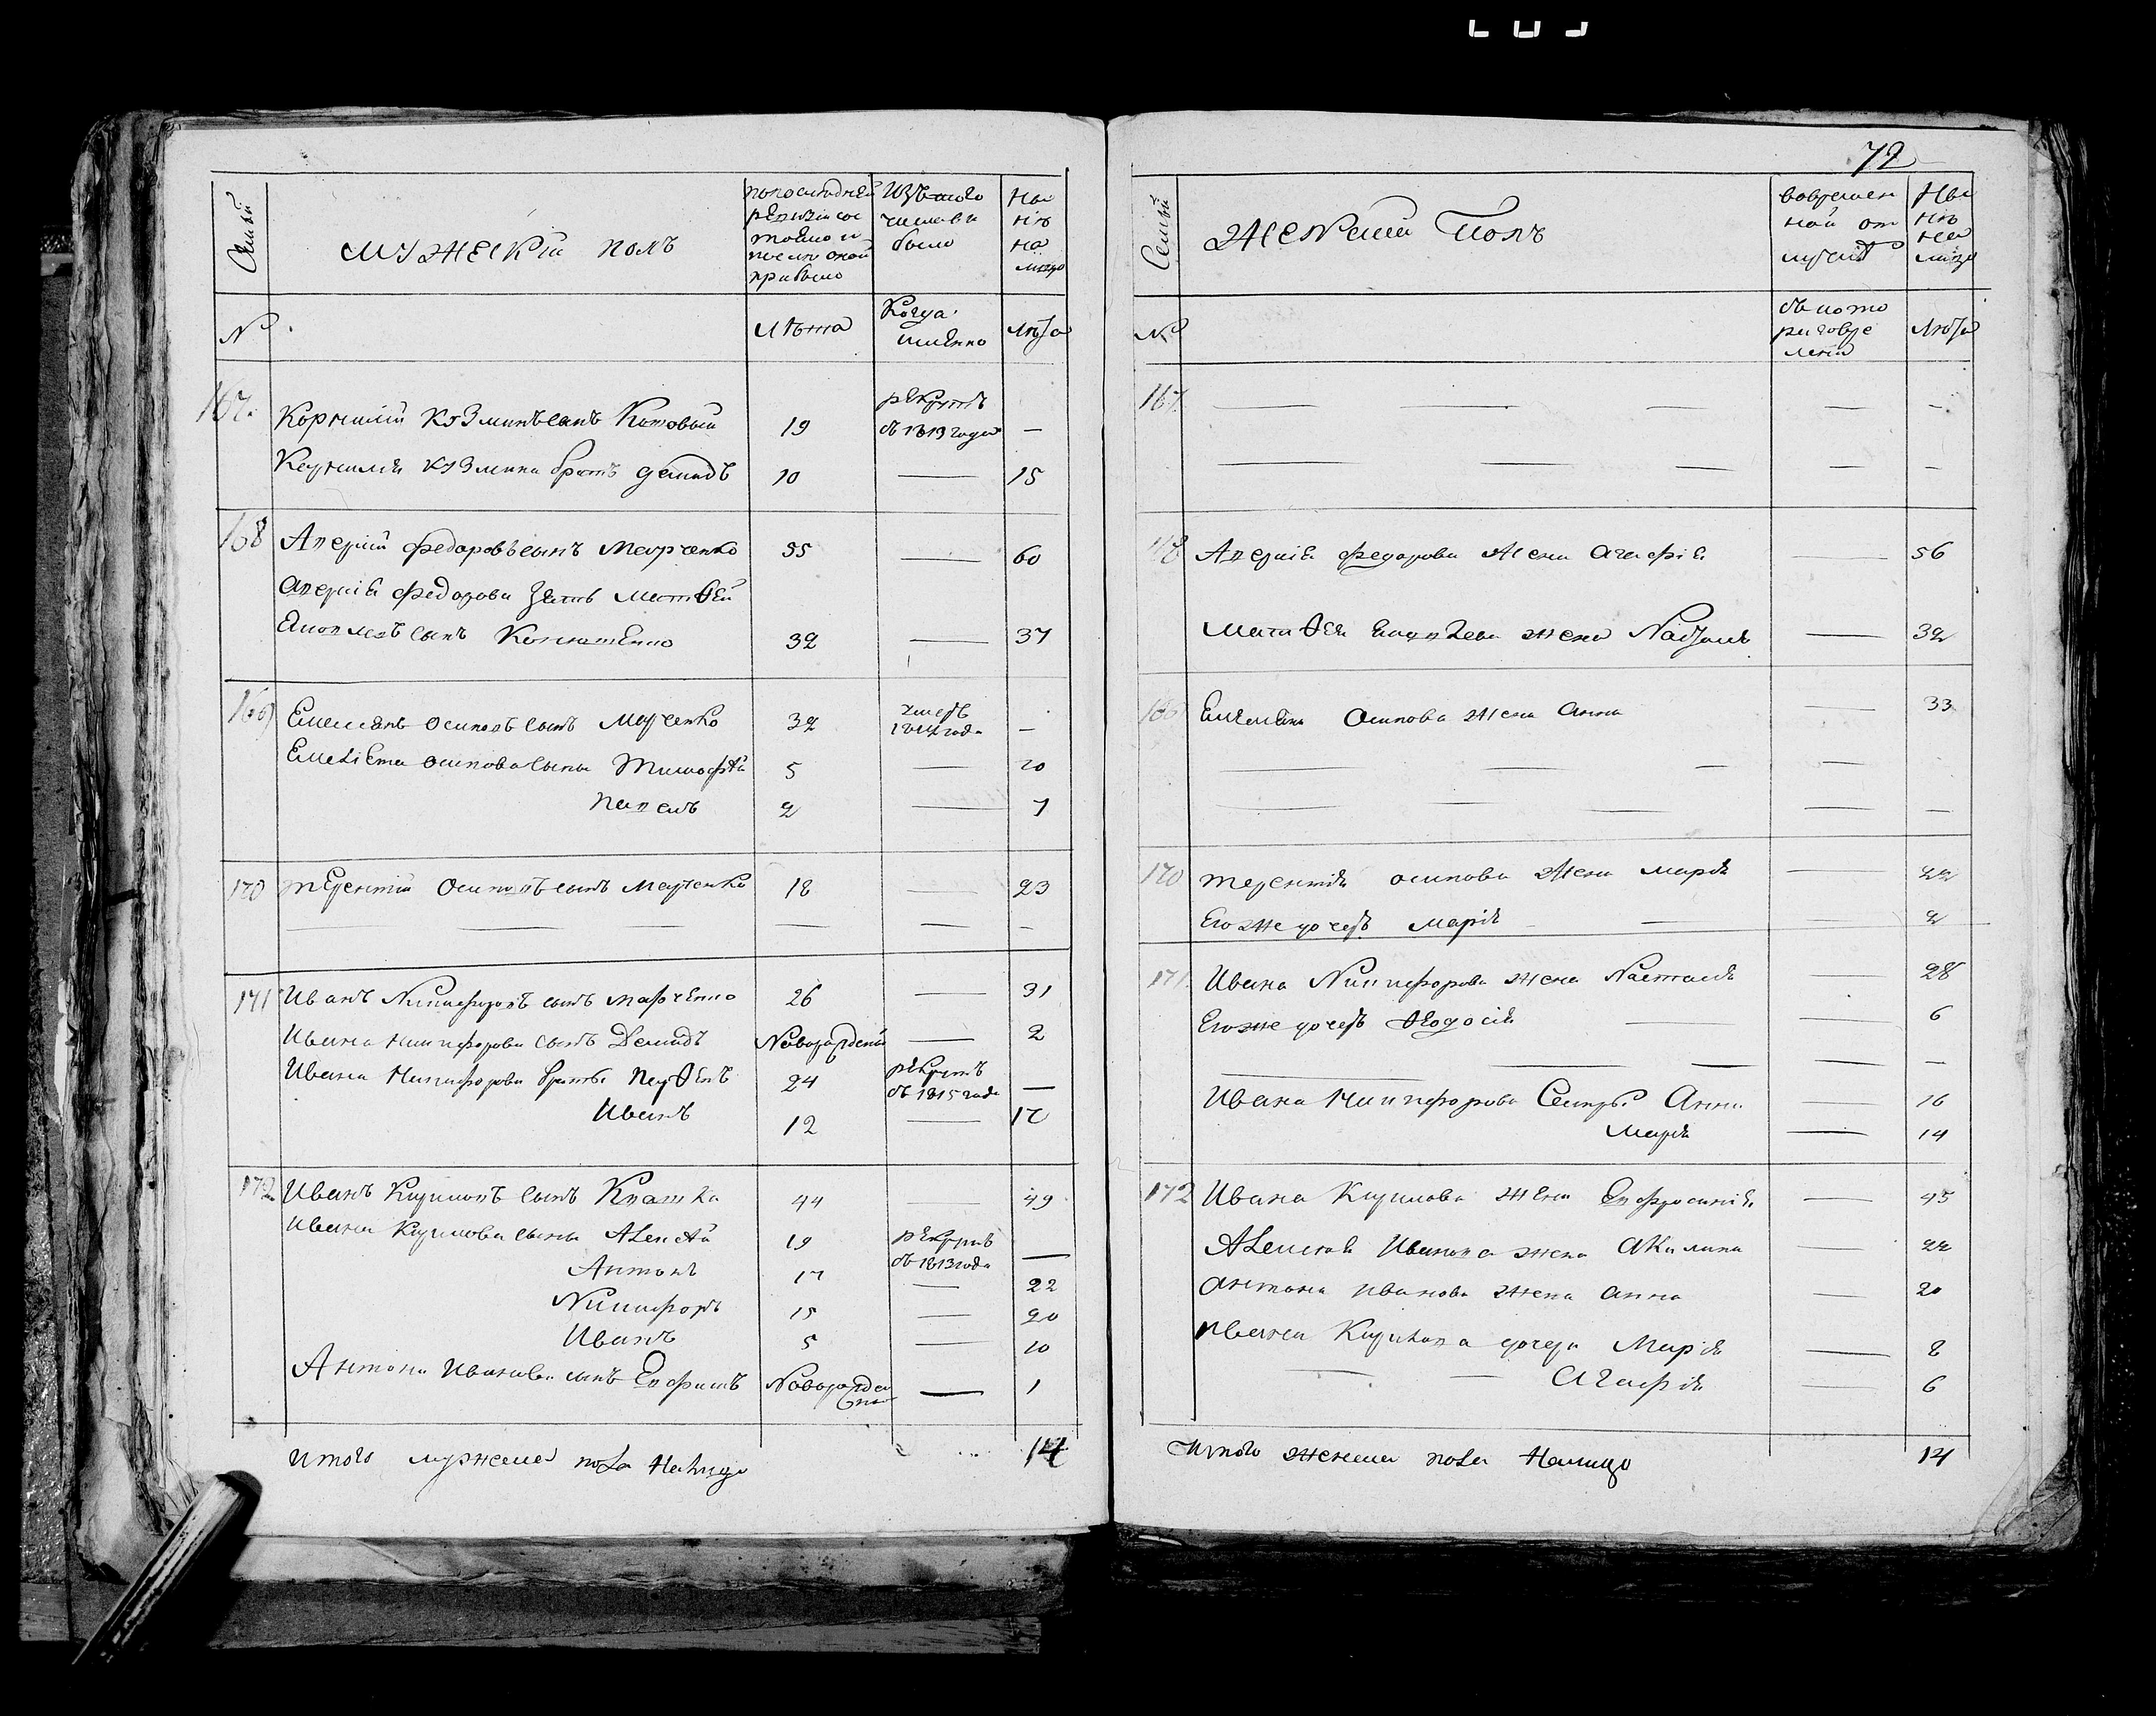 72
Семьи
Мужеский полъ
по последней
ревизіи сос
тояло и
после оной
прибыло
Изъ того
числа вы
было
Ны
нѣ
на
лицо
№
Лѣта
Когда
именно
Лѣта
167
Корнилій Кузминъ сынъ Котовый
19
рекрутъ
въ 1813 года
—
Корнилія Кузмина братъ Демидъ
10
15
168
федоровъ сынъ Марченко
55
60
федорова зять Матѳей
сынъ
32
37
169
Емельянъ Осиповъ сынъ Марченко
32
умеръ
1812 года
—
Емельяна Осипова сыны Тимофѣй
5
10
Павелъ
2
7
170
Терентій Осиповъ сынъ Марченко
18
23
171
Иванъ Никифоровъ сынъ Марченко
26
31
Ивана Никифорова сынъ Демидъ
Новорожденный
2
Ивана Никифорова братья Парѳенъ
24
рекрутъ
въ 1815 года
—
Иванъ
12
17
172
Иванъ Кириловъ сынъ Квашка
44
49
Ивана Кирилова сыны Алексѣй
19
рекрутъ
въ 1813 года
—
Антонъ
17
22
Никифоръ
15
20
Иванъ
5
10
Антона Иванова сынъ Ефимъ
Новорожден
1
Итого мужеска пола Налицо
14
Семьи
Женский Полъ
во времен
ной от
лучкѣ
Ны
нѣ
на
лицо
№
съ кото
раго вре
мени
Лѣта
167
168
федорова жена Агафія
56
Матѳея жена Наталья
32
169
Емельяна Осипова жена Анна
33
170
Терентія Осипова жена Марія
22
Его же дочерь Марія
2
171
Ивана Никифорова жена Наталія
28
Его же дочерь Ѳеодосія
6
Ивана Никифорова Сестры Анна
16
Марія
14
172
Ивана Кирилова жена Евфросинія
45
Алексѣя Иванова жена Акилина
22
Антона Иванова жена Анна
20
Ивана Кирилова дочери Марія
8
Агафія
6
Итого женска пола Налицо
14